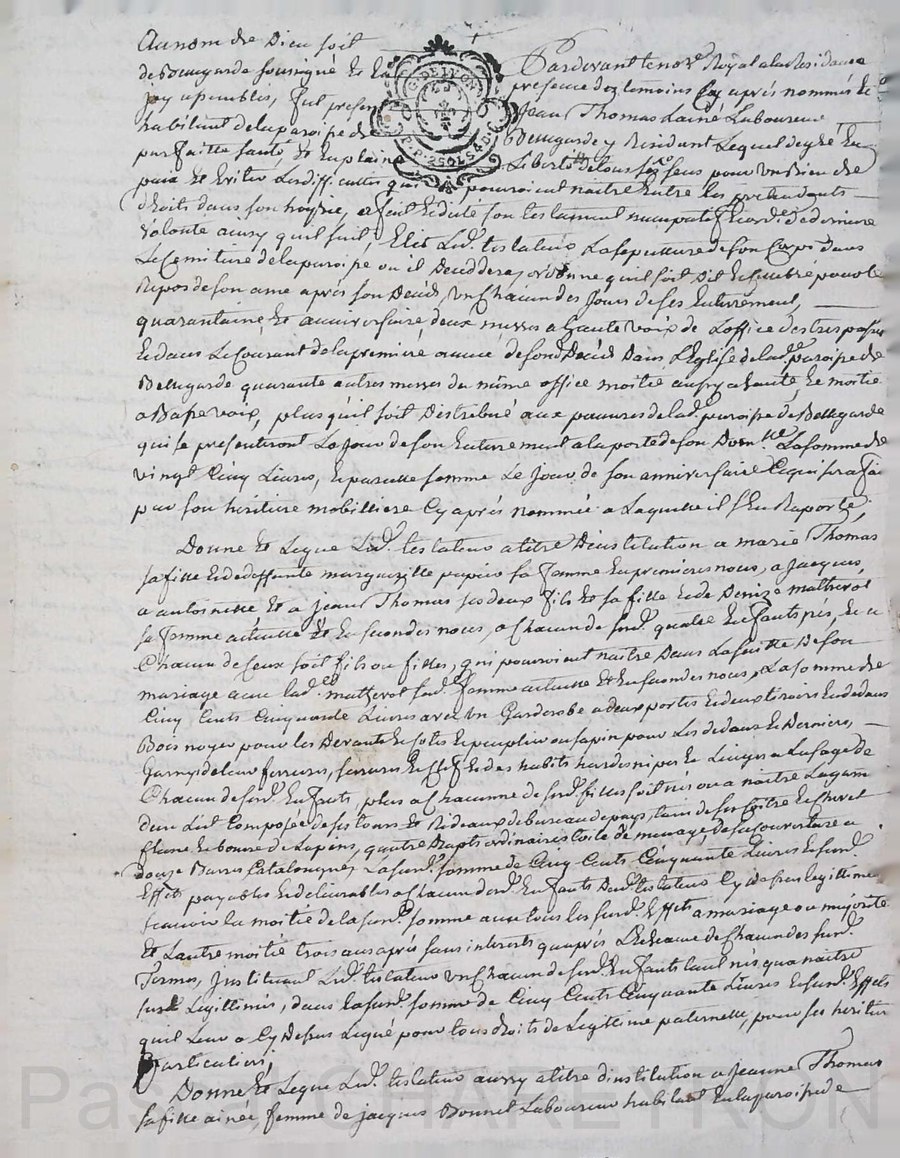 Au nom de Dieu soit
Pardevant le no.re Royal a la Residance
de Bellegarde soussigné et en
presence des temoins cy après nommés le
joy apemblis, fut present
Jean Thomas Lainé Laboureur
habitant de la paroisse de
Bellegarde y Residant Lequel de gré En
parfaitte santé, et En plaine
Liberté de tous ses sens pour
G. DE LYON
P.P. 2 SOLS 4 D.
paix et Eviter Les difficultés qui pourroient naitre Entre les pretendants
droits dans son hoirie, a fait et dicté son testament nuncupatif et ord.e de derniere
volonté aussy quil suit; Elit Led. testateur La sepulture de son Corps dans
Le Cemitiere de la paroisse ou il Deceddera, ordonne quil soit Dit et Celebré pour le
Repos de son ame après son Decès, Un Chacun des Jours de ses Enterrement,
quarantaine et anniversaire deux messes a haute voix de L'office des trespassés
Et dans Le Courant de la premiere année de son Decès Dans L'Eglise de lad. paroisse de
Bellegarde quarante autres messes du même office moitié aussy a haute, et moitié
a Basse voix, plus qu'il soit Distribué aux pauvres de lad. paroisse de Bellegarde
qui se presenteront Le Jour de son Enterrement a la porte de son Dom.lle La somme de
vingt Cinq Livres, Et pareille somme Le Jour de son anniversaire Ce qui sera fait
par son héritiere mobilliere Cy après nommée a Laquelle il s'En Raporte;
Donne et Legue Led. testateur a titre D'institution a marie Thomas
sa fille Et de deffunte margueritte papier sa femme En premieres noces, a Jacques,
a antoinette Et a Jean Thomas ses deux fils et sa fille Et de Denize matheval
sa femme actuelle Et En secondes noces, a Chacun de sesd. quatre Enfants nés, Et a
Chacun de Ceux soit fils ou filles, qui pourroient naitre Dans La suitte De son
mariage avec lad. matheval sad. femme actuelle Et En secondes noces, La somme de
Cinq Cents Cinquante Livres avec Un Garderobe a deux portes Et deux tiroirs En dedans
Bois noyer pour les Devants Et Cotés Et peuplier ou sapin pour Les dedans Et Derniere,
Garny de leur ferrures, serrures Et Clefs Et des habits hardes nipes Et Linges a L'usage de
Chacun de sesd. Enfants, plus a Chacunne de sesd. filles soit nées ou a naitre La garniture
d'un Lit Composée de ses tours Et Rideaux de bureau de pays,
plume Et bonne de Lapens, quatre Draps ordinaires toile de menage, de sa Couverture a
douze Barres Catalongnes, La susd. somme de Cinq Cents Cinquante Livres Et susd.
Effets payables Et delivrables a Chacun desd. Enfants Dud. testateur Cy dessus legittimés
sçavoir la moitié de la susd. somme avec tous les susd. Effets a mariage ou majorité
Et L'autre moitié trois ans après sans interets qu'après L'Echeance de Chacun des susd.
Termes, Instituant Led. testateur Un Chacun de sesd. Enfants tant nés qu'a naitre
susd. Legittimés, dans la susd. somme de Cinq Cents Cinquante Livres Et susd. Effets
quil Leur a Cy Dessus Legué pour tous droits de Legitime paternelle, pour ses heritiers
particuliers;
Donne Et Legue Led. testateur aussy a titre d'institution a Jeanne Thomas
sa fille ainée, femme de Jacques Bonnet Laboureur habitant En la paroisse de